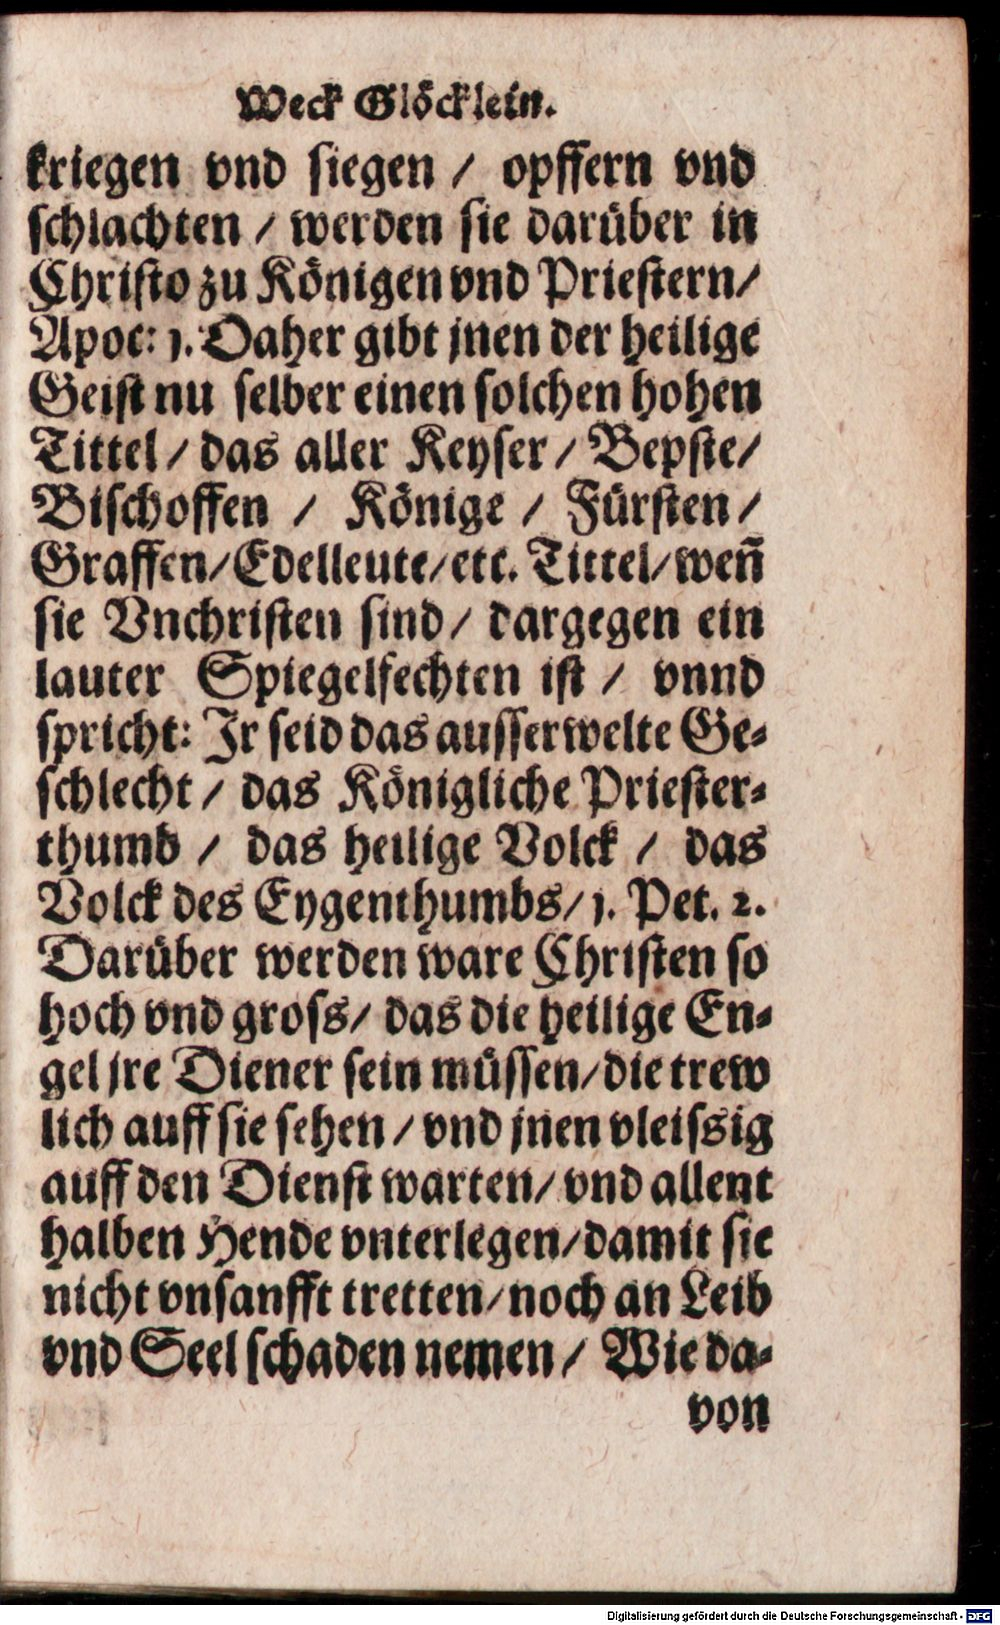 Weck Glöcklein.
kriegen vnd siegen / opffern vnd
schlachten / werden sie darüber in
Christo zu Königen vnd Priestern/
Apoc: 1. Daher gibt jnen der heilige
Geist nu selber einen solchen hohen
Tittel / das aller Keyser / Bepste/
Bischoffen / Könige / Fürsten /
Graffen/Edelleute/etc. Tittel/weñ
sie Vnchristen sind / dargegen ein
lauter Spiegelfechten ist / vnnd
spricht: Jr seid das ausserwelte Ge-
schlecht / das Königliche Priester-
thumb / das heilige Volck / das
Volck des Eygenthumbs/ 1. Pet. 2.
Darüber werden ware Christen so
hoch vnd gross/ das die heilige En-
gel jre Diener sein müssen/die trew
lich auff sie sehen / vnd jnen vleissig
auff den Dienst warten/ vnd allent
halben Hende vnterlegen/damit sie
nicht vnsanfft tretten/noch an Leib
vnd Seel schaden nemen / Wie da-
von
Digitalisierung gefördert durch die Deutsche Forschungsgemeinschaft - DFG